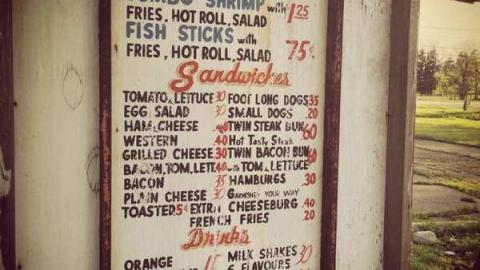 JUMBO SHRIMP with 1.25
FRIES, HOT ROLL, SALAD
FISH STICKS with
FRIES, HOT ROLL, SALAD 75¢
Sandwiches
TOMATO & LETTUCE 30 FOOT LONG DOGS 35
EGG SALAD 30 SMALL DOGS .20
HAM & CHEESE .40 TWIN STEAK BUN 60
WESTERN .40 Hot Tasty Steak
GRILLED CHEESE 30 TWIN BACON BUN 60
BACON, TOM, LETT 40 with TOM & LETTUCE
BACON 35 HAMBURGS .30
PLAIN CHEESE 30 GARNISHED YOUR WAY
TOASTED 5¢ EXTRA CHEESEBURG .40
FRENCH FRIES .20
Drinks
ORANGE 15 MILK SHAKES 30
6 FLAVOURS